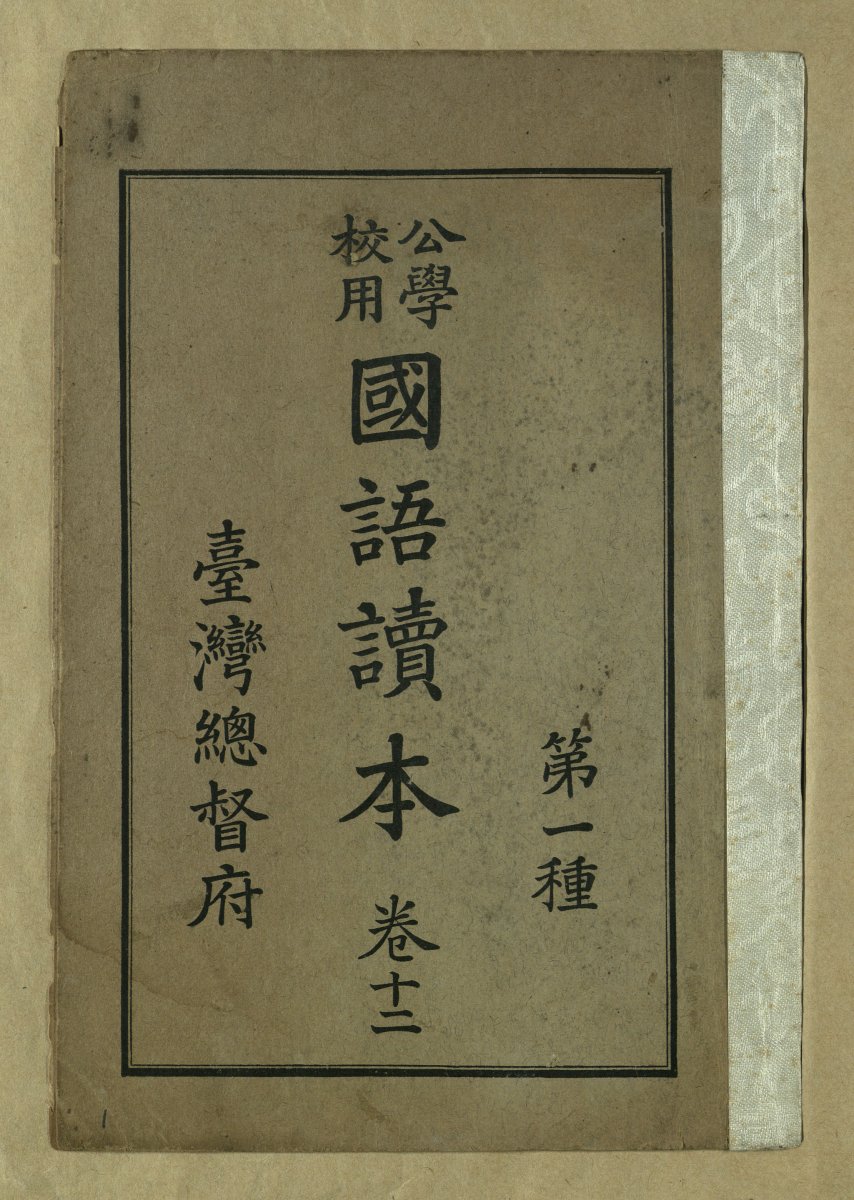 第一種
公學
校用
國語讀本 卷十二
臺灣總督府